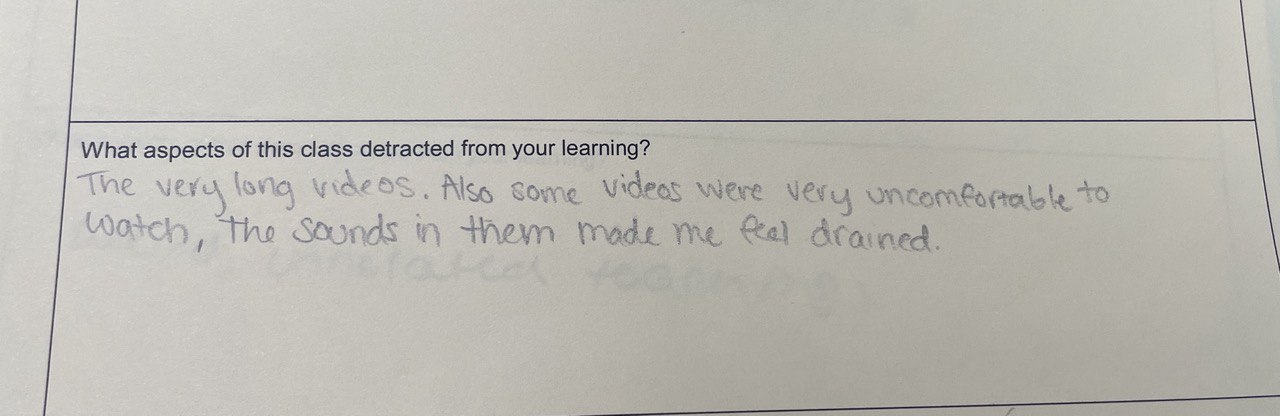 What aspects of this class detracted from your learning?
The very long videos. Also some videos were very uncomfortable to
watch, the sounds in them made me feel drained.